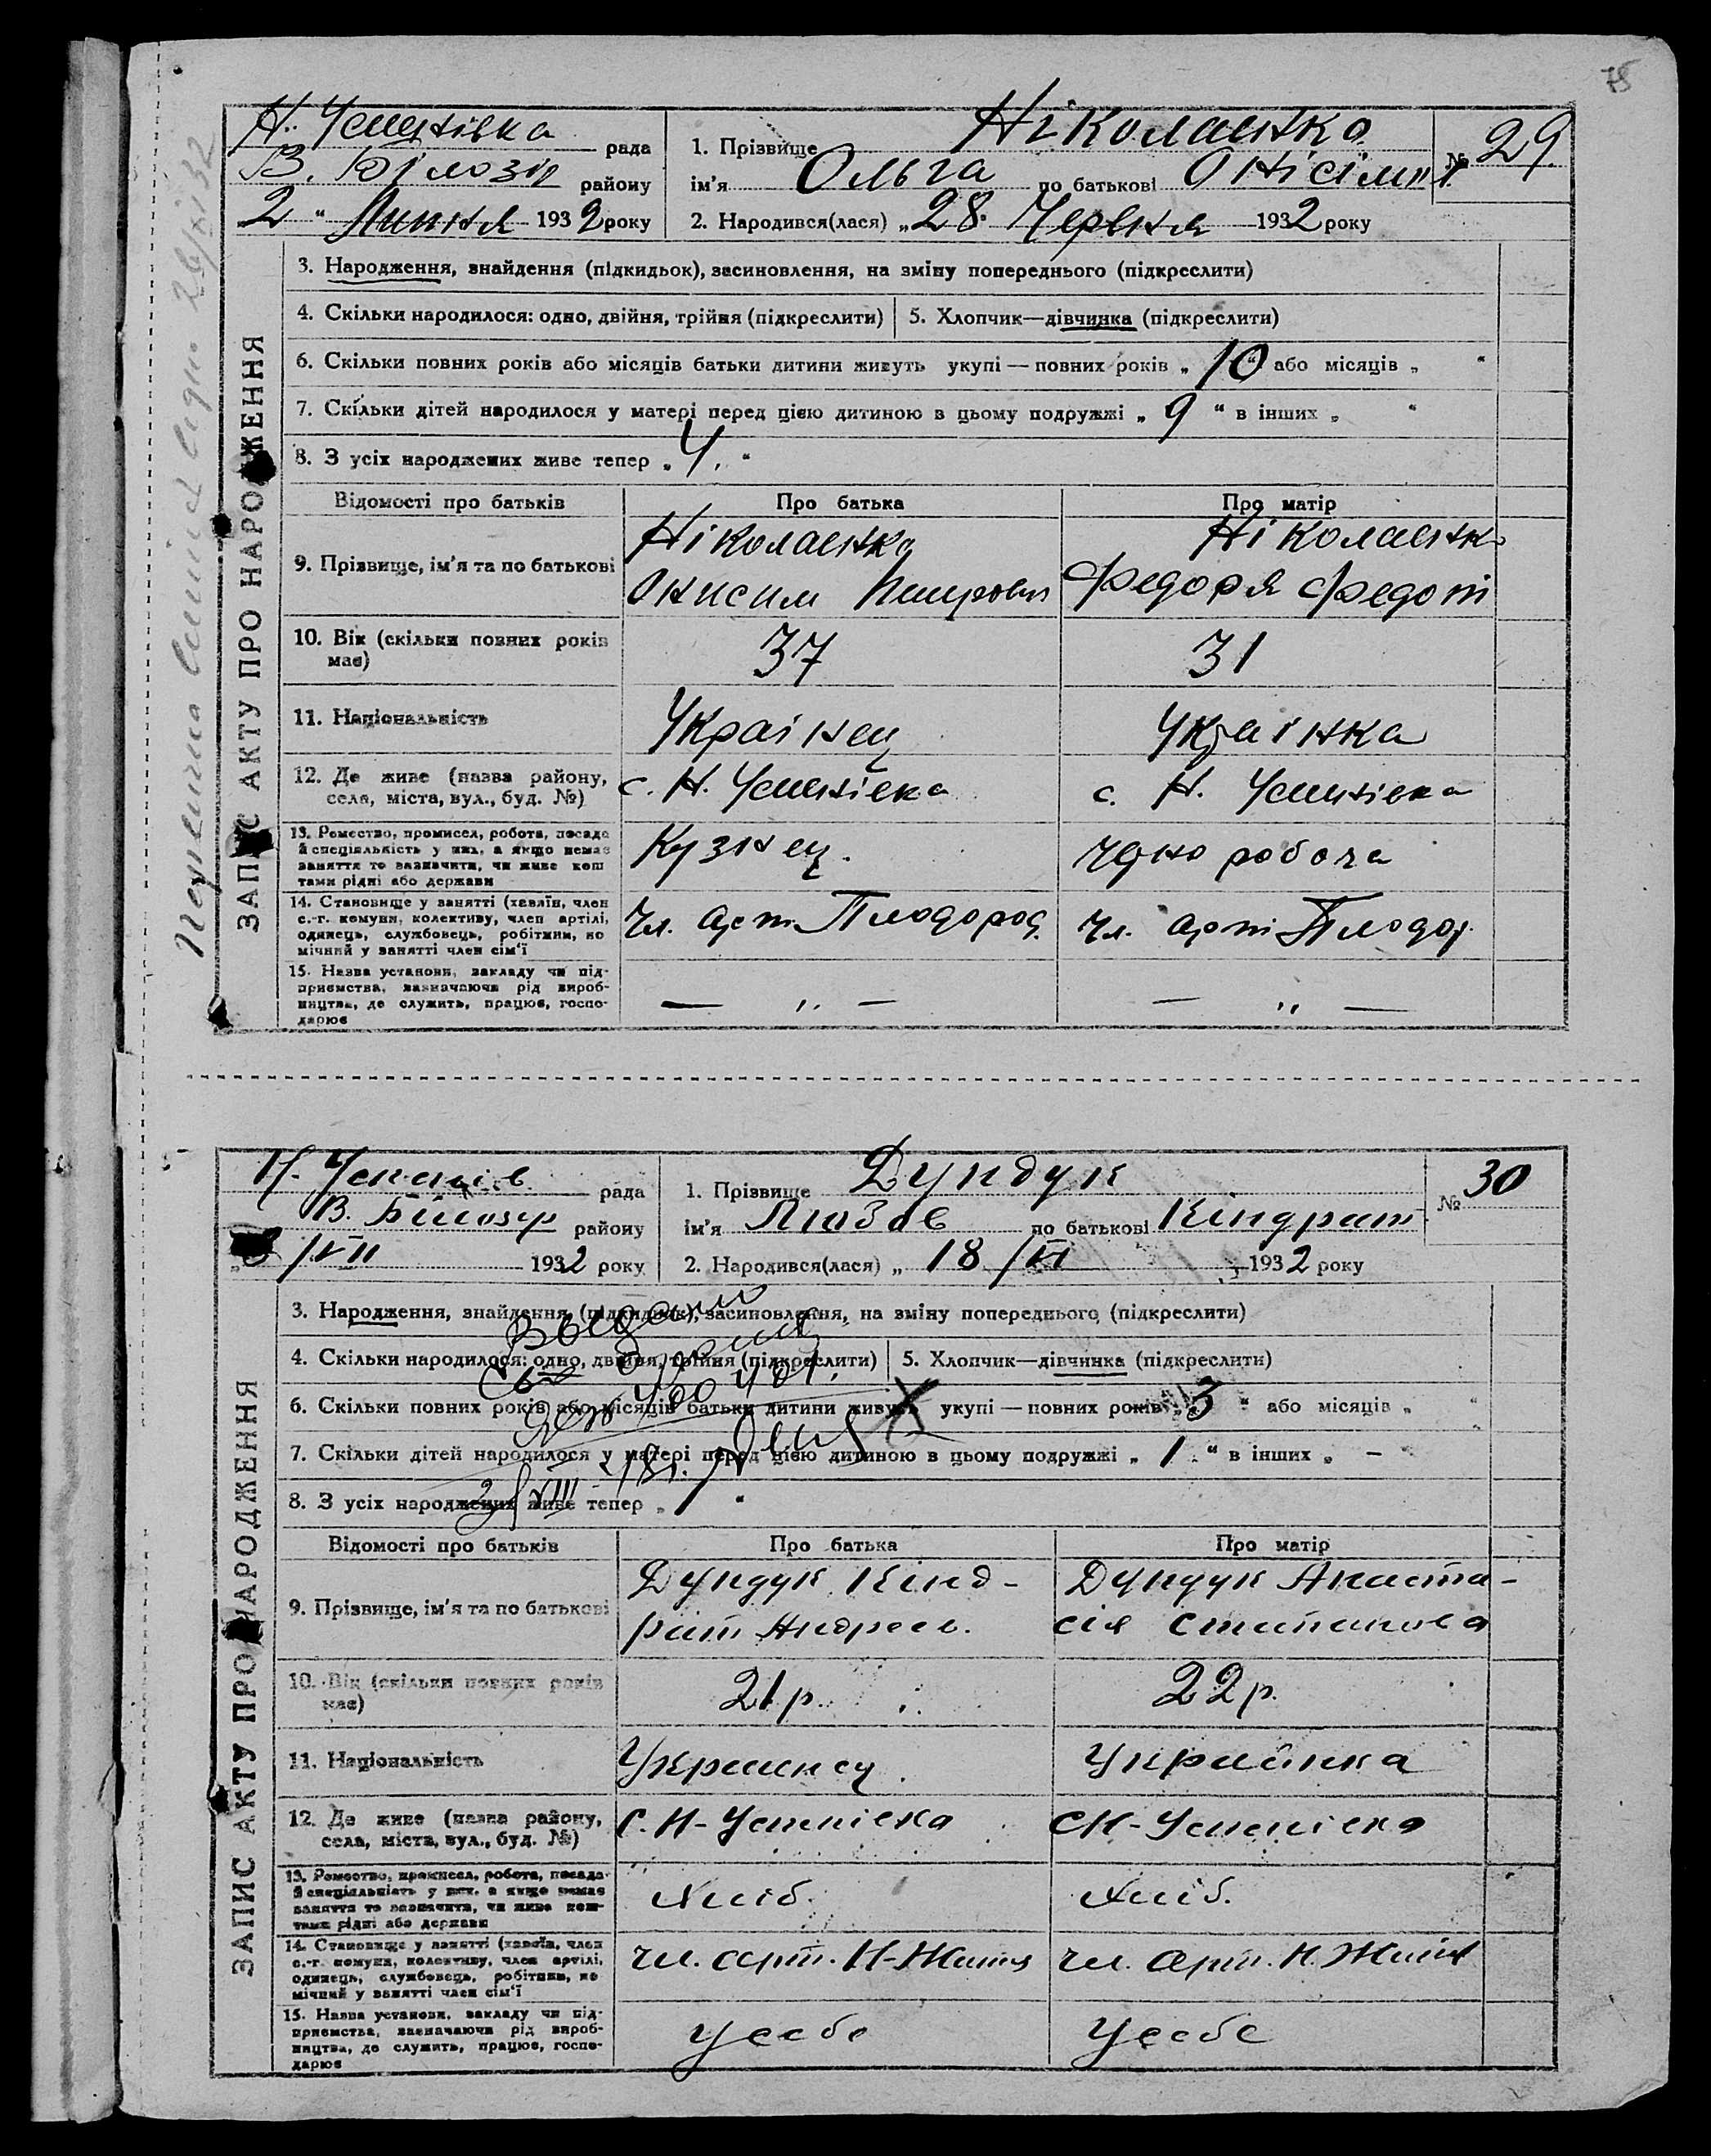 75
Н. Успенівка рада
В. Білозір району
2 " Липня 1932 року
1. Прізвище Ніколаенко
ім'я Ольга по батькові Онісім
№ 29.
2. Народився(лася) „28 Червня 1932 року
ЗАПИС АКТУ ПРО НАРОДЖЕННЯ
3. Народження, знайдення (підкидьок), засиновлення, на зміну попереднього (підкреслити)
4. Скільки народилося: одно, двійня, трійня (підкреслити) 5. Хлопчик—дівчинка (підкреслити)
6. Скільки повних років або місяців батьки дитини живуть укупі — повних років „ 10 " або місяців „ "
7. Скільки дітей народилося у матері перед цією дитиною в цьому подружжі „ 9 " в інших „ "
8. З усіх народжених живе тепер „ 4. "
Відомості про батьків Про батька Про матір
9. Прізвище, ім'я та по батькові
Ніколаенко
Онисим Петрович
Ніколаенк
Федора Федот
10. Вік (скільки повних років має) 37 31
11. Національність Українец Українка
12. Де живе (назва району, села, міста, вул., буд. №) с. Н. Успенівка с. Н. Успенівка
13. Ремество, промисел, робота, посада
й спеціяльність у них, а якщо немає
заняття то зазначити, чи живе кош
тами рідні або держави
Кузнец. Чорно робоча
14. Становище у занятті (хазяїн, член
с.-г. комуни, колективу, член артілі,
одинець, службовець, робітник, по
мічний у занятті член сім'ї
Чл. арт. Плодород. Чл. арт. Плодор.
15. Назва установи, закладу чи під-
приємства, зазначаючи рід вироб-
ництва, де служить, працює, госпо-
дарює
— " — — " —
Н. Успенів. рада
В. Білозір району
/VII 1932 року
1. Прізвище Дундук
ім'я Любов по батькові Кіндрат
№ 30
2. Народився(лася) „ 18/VI 1932 року
ЗАПИС АКТУ ПРО НАРОДЖЕННЯ
3. Народження, знайдення (підкидьок), засиновлення, на зміну попереднього (підкреслити)
4. Скільки народилося: одно, двійня, трійня (підкреслити) 5. Хлопчик—дівчинка (підкреслити)
6. Скільки повних років або місяців батьки дитини живуть укупі — повних років „ 3 " або місяців „ "
7. Скільки дітей народилося у матері перед цією дитиною в цьому подружжі „ 1 " в інших „ –
8. З усіх народжених живе тепер „ 1 "
Відомості про батьків Про батька Про матір
9. Прізвище, ім'я та по батькові
Дундук Кінд-
рат Андреев.
Дундук Анаста-
сія Степанова
10. Вік (скільки повних років має) 21 р. 22 р.
11. Національність Украинец Украінка
12. Де живе (назва району, села, міста, вул., буд. №) С. Н-Успенівка С Н-Успенівка
13. Ремество, промисел, робота, посада
й спеціяльність у них, а якщо немає
заняття то зазначити, чи живе кош-
тами рідні або держави
Хліб. Хліб.
14. Становище у занятті (хазяїн, член
с.-г. комуни, колективу, член артілі,
одинець, службовець, робітник, по
мічний у занятті член сім'ї
чл. арт. Н-Життя чл. арт. Н. Життя
15. Назва установи, закладу чи під-
приємства, зазначаючи рід вироб-
ництва, де служить, працює, госпо-
дарює
у себе у себе